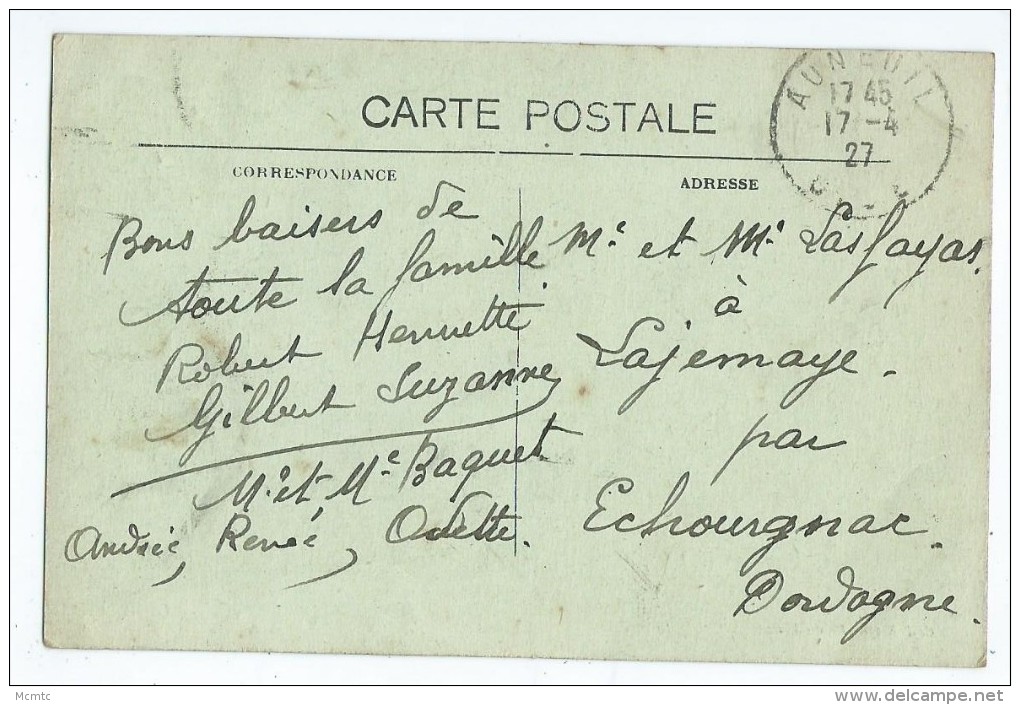 CARTE POSTALE
AUNEUIL
17 45
17 -4
27
CORRESPONDANCE
Bons baisers de
toute la famille
Robert Henriette
Gilbert Suzanne
Mr et Me Baquet
Andrée, Renée, Odette.
ADRESSE
Me et Mr Lasfayas.
à
Lajemaye.
par
Echourgnac.
Dordogne.
Mcmtc
delcampe.net